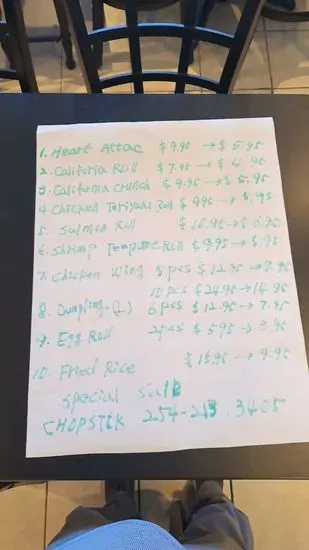 1. Heart Attac $9.95 → $5.95
2. Califoria Roll $7.95 → $4.95
3. California crunch $9.95 → $5.95
4. Chicken Teriyaki Roll $9.95 → $5.95
5. Salmon Roll $10.95 → $6.95
6. Shrimp Tempure Roll $9.95 → 5.95
7. Chicken Wing 5 pcs $12.95 → 7.95
10 pcs $24.95 → 14.95
8. Dumpling. (L) 6 pcs $12.95 → 7.95
9. Egg Roll 2 pcs $5.95 → 3.95
10. Fried Rice $15.95 → 9.95
special sale
CHOPSTIK 254-213.3405